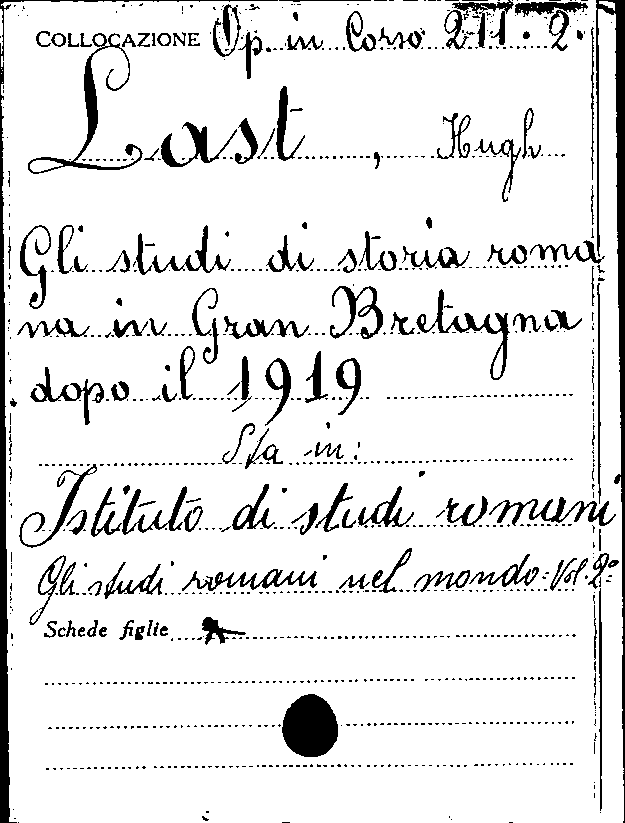 COLLOCAZIONE Op. in Corso 211.2.
Last, Hugh
Gli studi di storia roma
na in Gran Bretagna
dopo il 1919
Sta in:
Istituto di studi romani
Gli studi romani nel mondo. Vol. 2°
Schede figlie